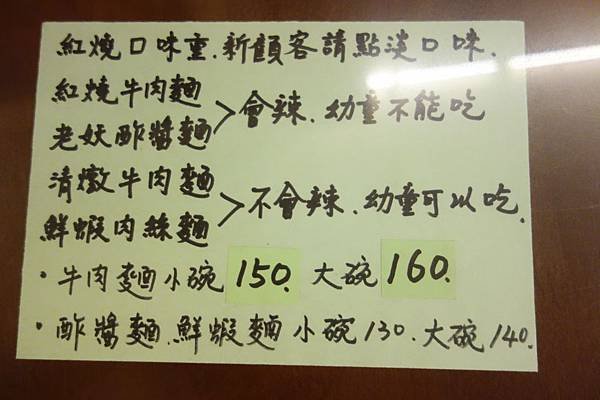 紅燒口味重.新顧客請點淡口味.
紅燒牛肉麵
老妖酢醬麵
會辣.幼童不能吃
清燉牛肉麵
鮮蝦肉絲麵
不會辣.幼童可以吃.
·牛肉麵小碗 150. 大碗 160.
·酢醬麵.鮮蝦麵小碗130.大碗140.